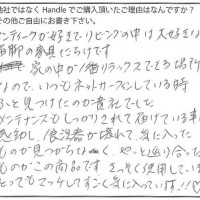 他社ではなく Handle でご購入頂いたご理由はなんですか?
その他ご自由にお書き下さい。
アンティークが好きでリビングの中は大好きな
家の中が1番リラックスできる場所
なので、いつもネットサーフィンしている時
ると見つけたのが貴社でした
メンテナンスもしっかりされて届けている事に
感動し、食洗器が壊れて、気に入った
ものが見つからない やっと巡り合った
ものがこの商品です さっそく使用してい
とってもマッチしてすごく気に入っています!!